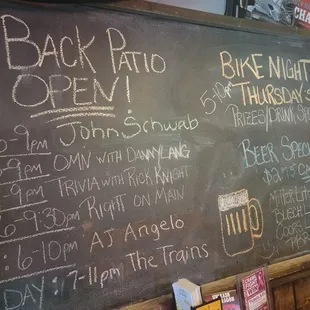 Back Patio
OPEN!
John Schwab
-9pm OMN with Danny Lang
-9pm Trivia with Rick Knight
6-9:30pm Right on Main
: 6-10pm AJ Angelo
DAY: 7-11pm The Trains
Bike Night
Thursday's
Prizes/Drink
Beer Spec
Miller Lite
Busch L
Coors